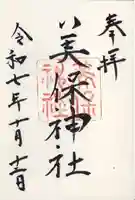 奉拝
美保神社
令和七年十月十二日